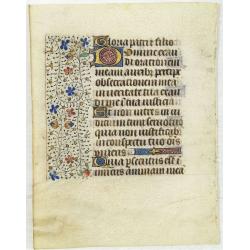 Gloria patri filio
Domine exau
di orationem
meam aurib percipe
obsecrationem meam
in veritate tua exau
di me in tua iusticia
Et non intres in iu
dicium cum servo tuo
quia non iustificabit
in conspectu tuo ois
vivens
Quia persecutus est i
nimicus animam mea